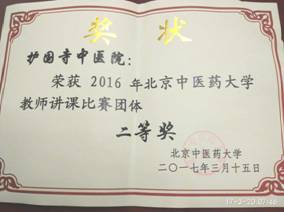 奖状
护国寺中医院：
荣获 2016 年北京中医药大学
教师讲课比赛团体
二等奖
北京中医药大学
二〇一七年三月十五日